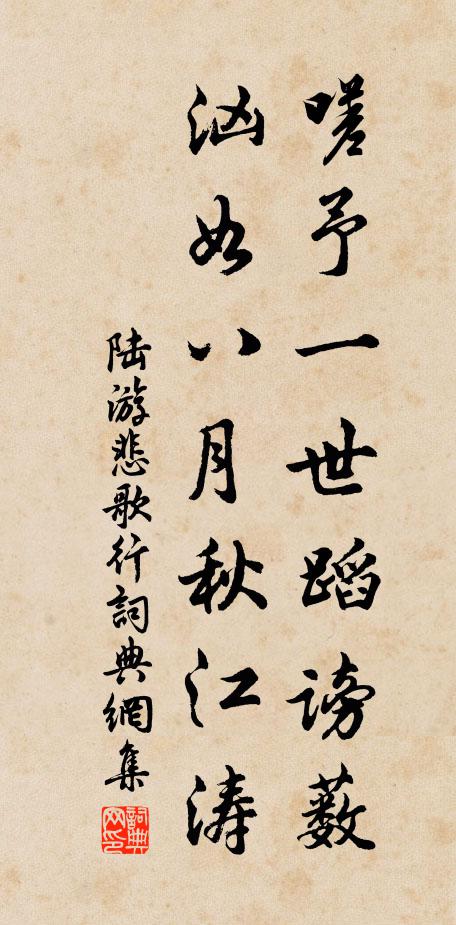 嗟予一世蹈谤薮
汹如八月秋江涛
陆游悲歌行詞典網集
詞典网印